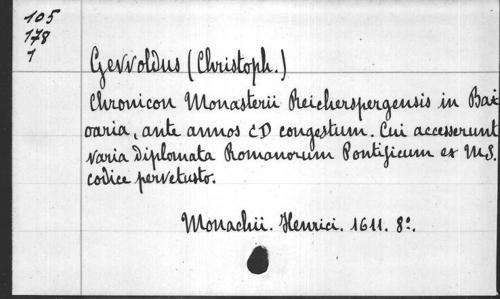 105
178
1
Gewoldus (Christoph.)
Chronicon Monasterii Reicherspergensis in Bai
oaria, ante annos CD congestum. Cui accesserunt
varia Diplomata Romanorum Pontificum ex M.S.
codice pervetusto.
Monachii. Henrici. 1611. 8º.